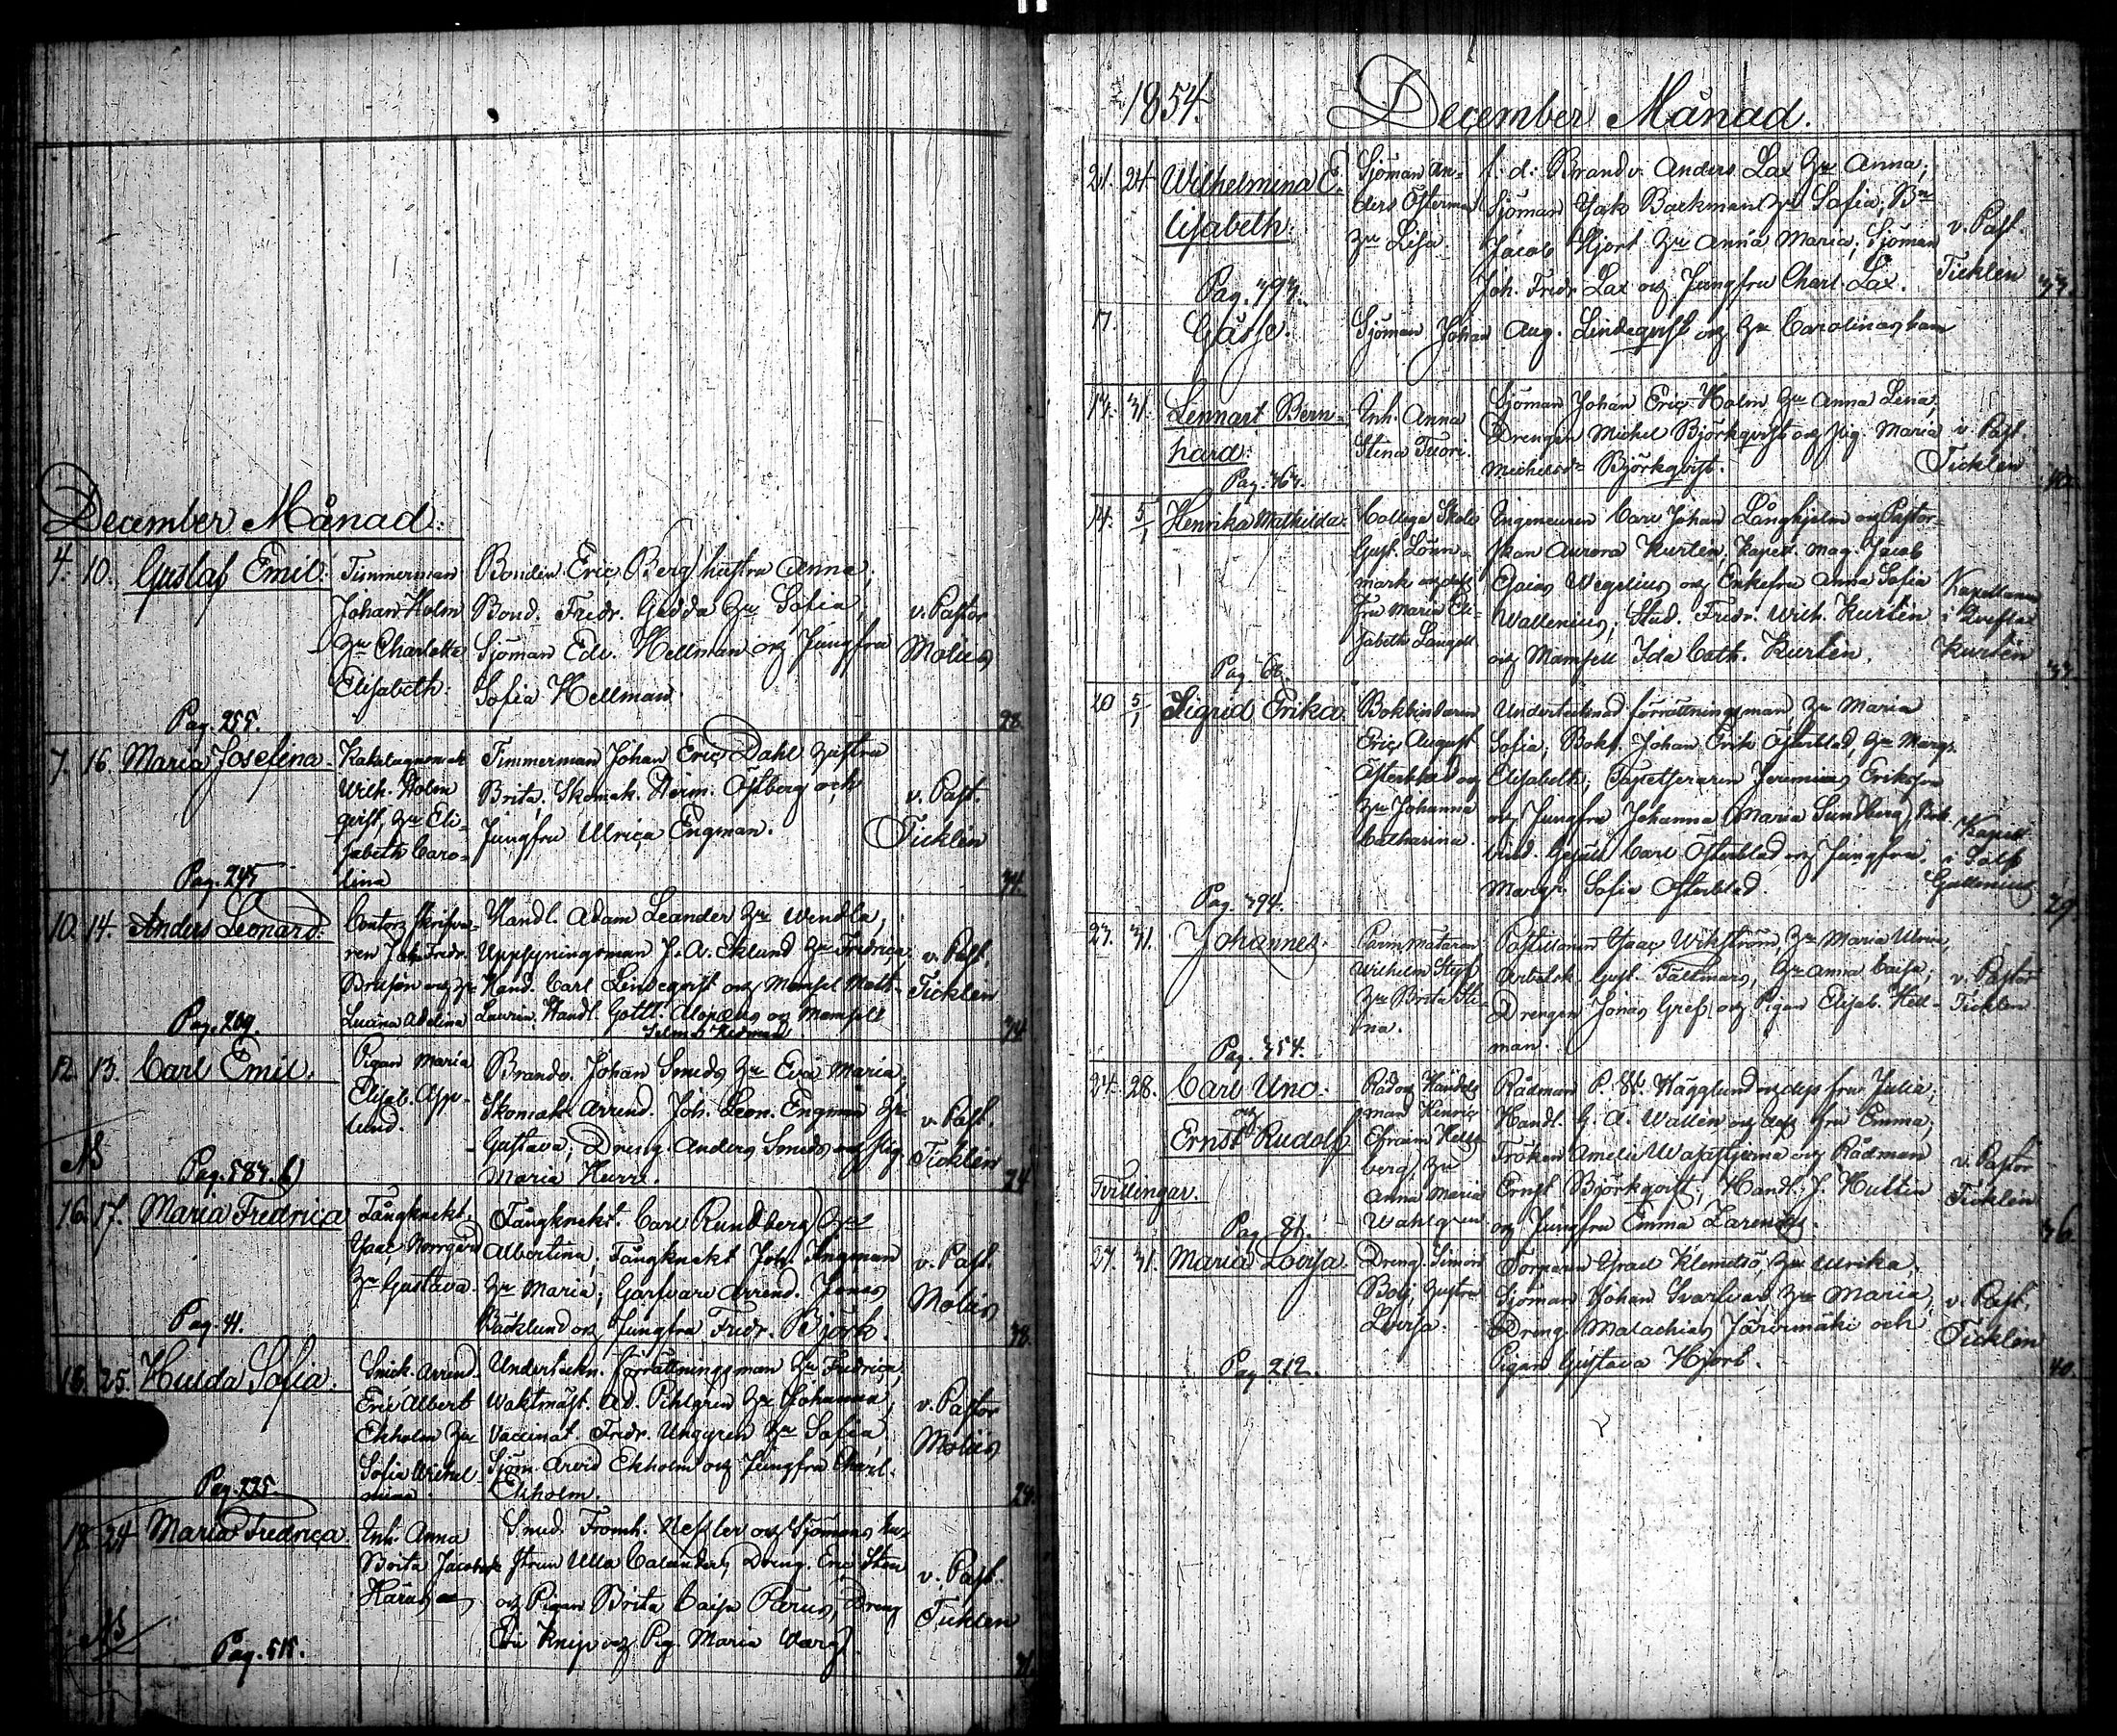 December Månad:
4. 10. Gustaf Emil.
Timmerman
Johan Holm
Hu Charlotta
Elisabeth:
Bonden Eric Berg hustru Anna,
Bond. Fredr. Gedda Hu Sofia,
Sjöman Edv. Hellman och Jungfru
Sofia Hellman
v. Pastor
Molius
Pag. 255.
28.
7. 16. Maria Josefina.
Kakelugnsmak
Wilh. Holm
qvist, Hu Eli-
sabeth Caro-
lina
Timmerman Johan Eric Dahl hustru
Brita, Skomak. Herm. Östberg och
Jungfru Ulrica Engman.
v. Past.
Ticklén
Pag. 245
34.
10. 14. Anders Leonard.
Contors skrifva-
ren Joh. Fredr.
Lucina Adelina
Handl. Adam Leander Hu Wendla,
Uppsyningsman J. A. Eklund Hu Fredrica
Hand. Carl Lindeqvist och Mamsel Math.
Laurin, Handl. Gottl. Alopæus og Mamsell
Selma Hedman
v. Past.
Ticklén
Pag. 209.
34
12. 13. Carl Emil.
Pigan Maria
Elisab. Asp-
lund.
Brandv. Johan Smeds Hu Eva Maria,
Skomak. Arrend. Joh. Leon. Engman Hu
Gustava, Dreng. Anders Smeds och Pig.
Maria
v. Past.
Ticklén
Pag. 587. b)
24
16. 17. Maria Fredrica
Fångknekt.
Isaac Norrgård
Hu Gustava.
Fångknekt. Carl Rundberg Hu
Albertina, Fångknekt Joh. Ingman
Hu Maria, Garfvare Arrend. Jonas
Bäcklund och Jungfru Fredr. Björk.
v. Past.
Molius
Pag. 41.
38.
18. 25. Hulda Sofia.
Snick. Arrend.
Eric Albert
Ekholm Hu
Sofia Wilhel
mina.
Underteckn. förrättningsman Hu Fredrica,
Waktmäst. Ad. Pihlgren Hu Johanna,
Vaccinat. Fredr. Unggren Hu Sofia
Sjöm. Arvid Ekholm och Jungfru Charl.
Ekholm.
v. Pastor
Molius
Pag. 225.
24.
18. 24 Maria Fredrica.
Enk. Anna
Brita Jacobsdr
Smed. Fromh. Nessler och Sjömans hu-
strun Ulla Calander, Dreng. Eric Sten
och Pigan Brita Caisa Parus, Dreng
Eric Knip och Pig. Maria Warg.
v. Past.
Ticklén
Pag. 515.
1854. December Månad.
21. 24. Wilhelmina E-
lisabeth.
Sjöman An-
ders Österman
Hu Lisa.
f. d. Brandv. Anders Lax Hu Anna,
Sjöman Isak Backman Hu Sofia, Bn
Jacob Hjort Hu Anna Maria, Sjöman
Joh. Fredr. Lax och Jungfru Charl. Lax.
v. Past.
Ticklén
Pag. 393.
33.
17. Gosse.
Sjöman Johan Aug. Lindeqvist och Hu Carolinas barn
13. 31. Lennart Bern-
hard.
Inh. Anna
Stina Tuori.
Sjöman Johan Eric Holm Hu Anna Lena,
Drengen Michel Björkqvist och Pig. Maria
Michelsdr Björkqvist.
v. Past.
Ticklén
Pag. 363.
14. 5/1 Henrika Mathilda.
Collega Skolæ
Gust. Lönn-
mark och dess
fru Maria Eli-
sabeth Langell
Ingeneuren Carl Johan Långhjelm och Pastor-
skan Aurora Kurtén, Kapell. Mag. Jacob
Esaias Wegelius och Enkefru Anna Sofia
Wallenius, Stud. Fredr. Wilh. Kurtén
och Mamsell Ida Cath. Kurtén.
Kapellanen
i Qveflax
Kurtén
Pag. 68.
33.
20 5/1 Sigrid Erika.
Bokbindaren
Eric August
Österblad och
Hu Johanna
Catharina.
Undertecknad förrättningsman, Hu Maria
Sofia, Bokh. Johan Erik Österblad, Hu Margr.
Elisabeth, Tapetseraren Jeremias Erikson
och Jungfru Johanna Maria Sundberg, Bok-
bind. Gesäll Carl Österblad och Jungfru.
Margr. Sofia Österblad.
Kapell.
i Solf
Gallenius
Pag. 394.
29.
23. 31. Johannes.
Wilhelm Styf
Hu Brita Sti-
na.
Postillionen Isaac Wikström, Hu Maria Ulrica,
Arbetsk. Gust. Fältmars, Hu Anna Caisa,
Drengen Jonas Gref och Pigan Elisab. Hell-
man.
v. Pastor
Ticklén
Pag. 354.
24. 28. Carl Uno.
och
Ernst Rudolf
Tvillingar.
Råd och Handels
man Henric
Efraim Hells
berg, Hu
Anna Maria
Wahlgren
Rådman P. W. Hägglund och dess fru Julia,
Handl. G. A. Wallén och dess fru Emma,
Fröken Amelie Wasastjerna och Rådman
Ernst Björkqvist, Handl. J. Hultin
och Jungfru Emma
v. Pastor
Ticklén
Pag. 81.
36.
27. 31. Maria Lovisa.
Dreng. Simon
Boij, hustru
Lovisa.
Torparen Israel Klemetsö, Hu Ulrika,
Sjöman Johan Svarfvar Hu Maria,
Dreng. Malachias Järvimäki och
Pigan Gustava Hjort.
v. Past.
Ticklén
Pag. 212.
40.